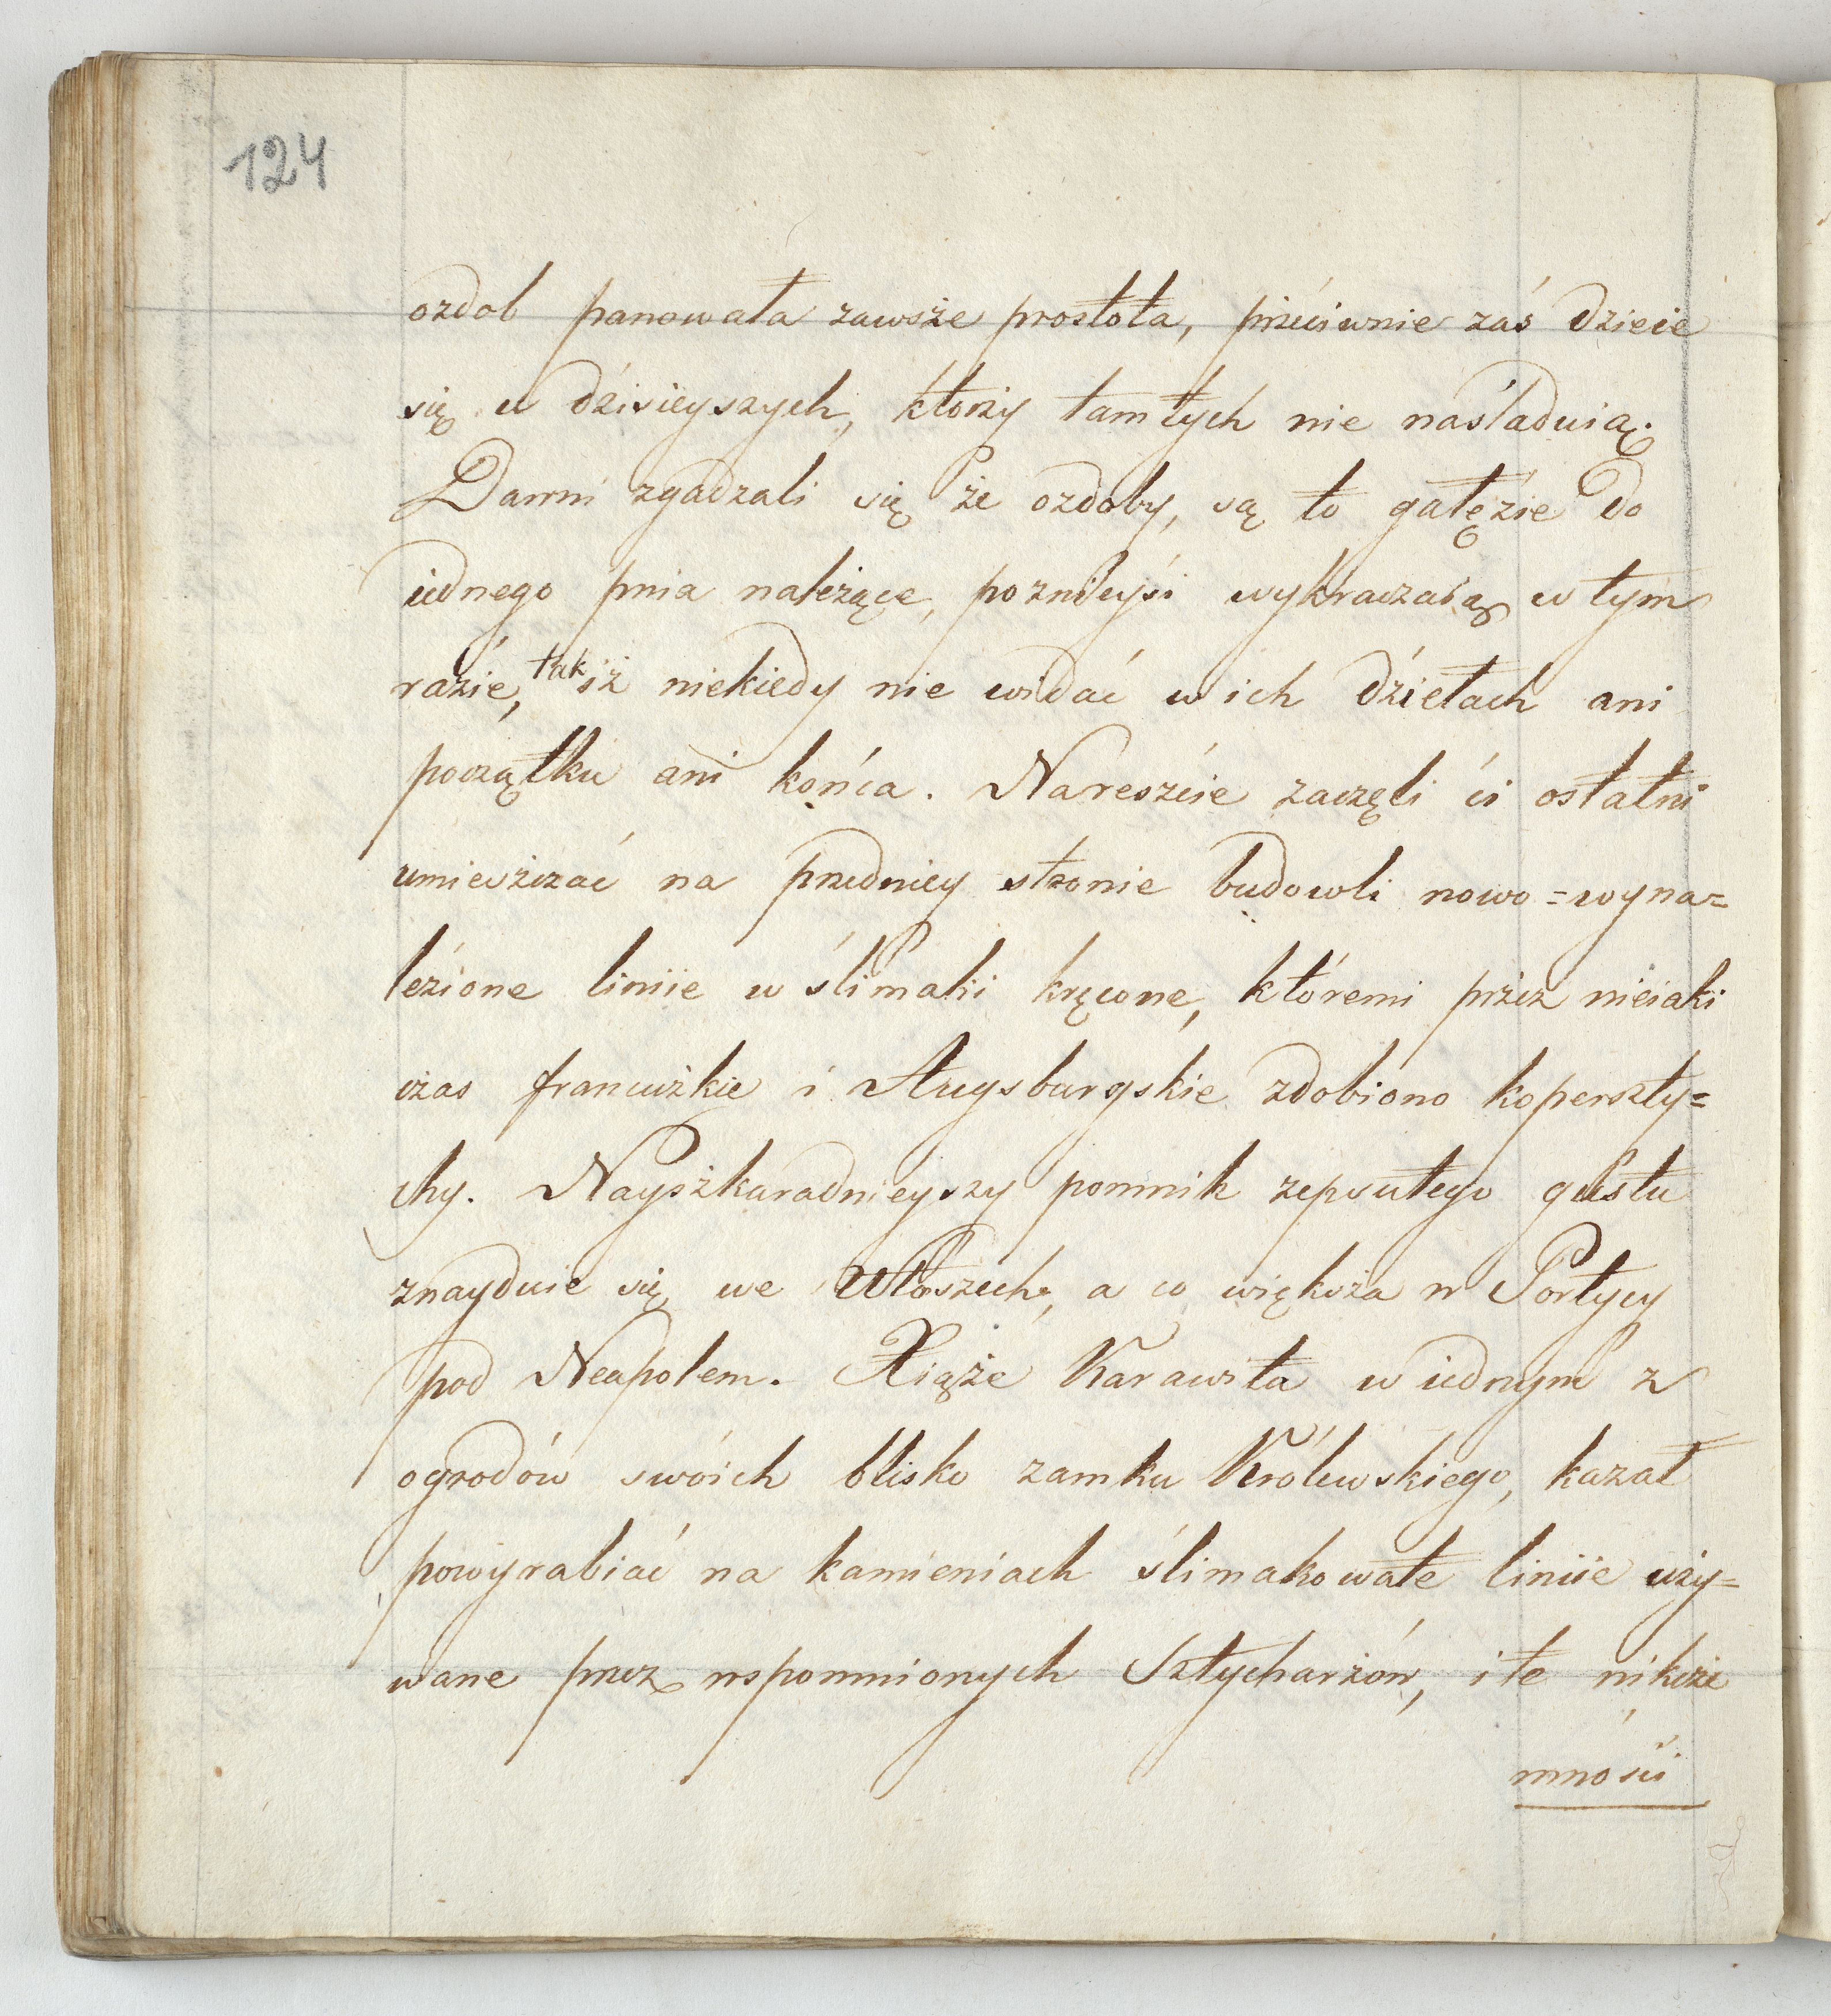 124
ozdob panowała zawsże prostota, przéciwnie zaś dzieie
się u dźisieyszych, ktorży tamtych nie naśladuią.
Dawni zgadzali się że ozdoby, są to gałęzie do
iednego pnia należące, poznieyśi wykraczaią w tym
raźie, tak iż niekiedy nie widać w ich dźiełach ani
początku ani końca. Naresźcie zaczęli ći ostatni
umiesżczać na przedniey stronie budowli nowo=wyna=
leźione liniie w ślimaki kręcone, któremi przez nieiaki
czas francuzkie i Augsburgskie zdobiono kopersżty=
chy. Nayszkaradnieyszy pomnik zepsutego gustu
znayduie się we Włoszech, a co większa w Portycy
pod Neapolem. Xiąże Karawita w iednym z
ogrodów swóich blisko zamku Królewskiego, kazał
powyrabiać na kamieniach ślimakowate liniie uży=
wane przez wspomnionych Sztycharżów, i te nikcze
mnośći